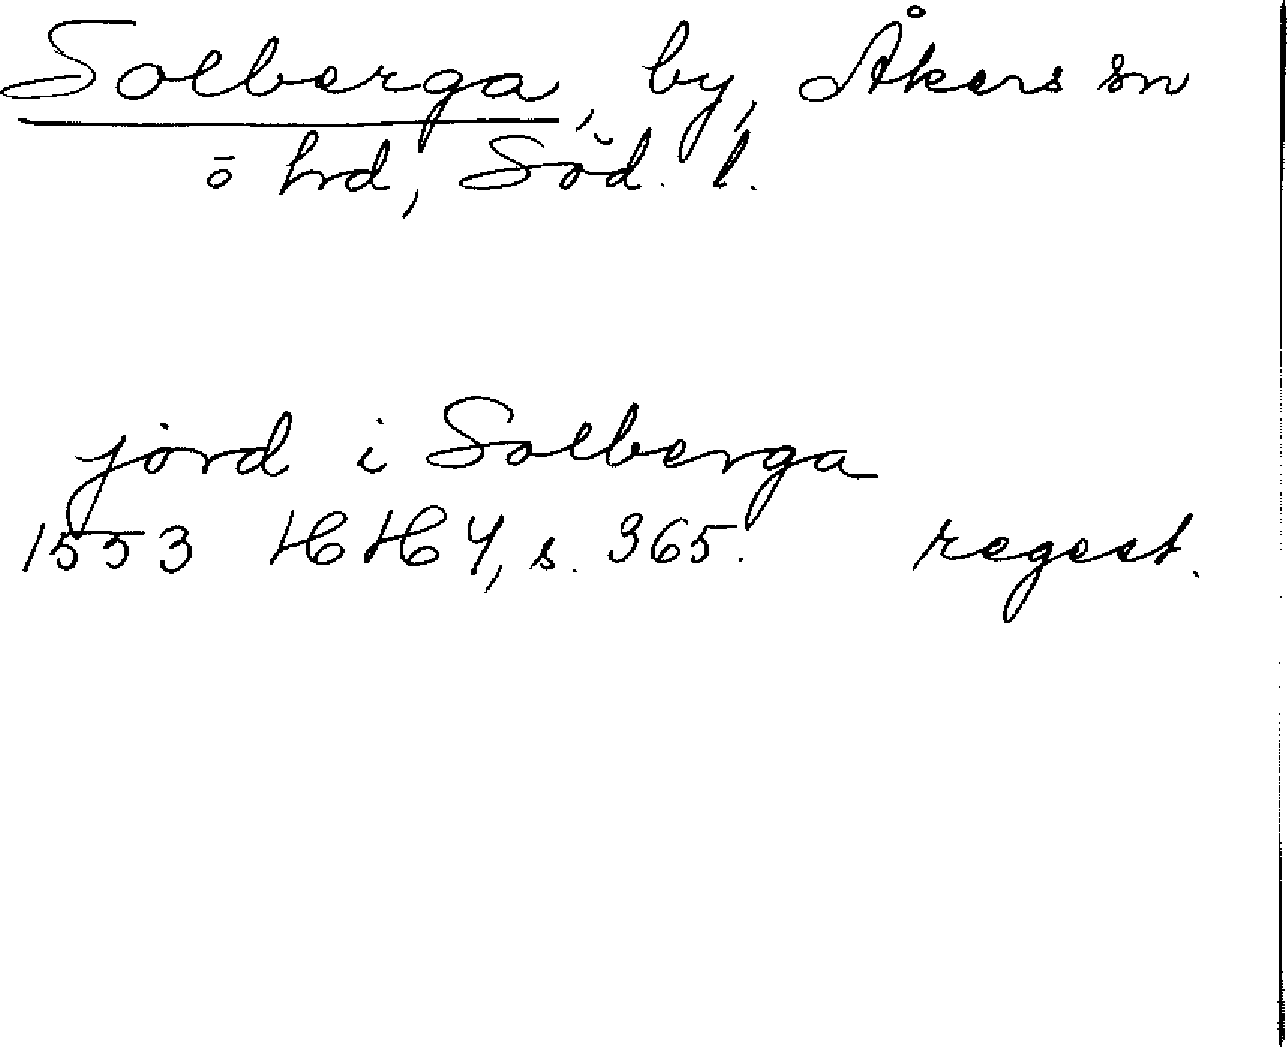 Solberga, by, Åkers sn
ö hrd, Söd. l.
jord i Solberga
1553 HH 4, s. 365. regest.